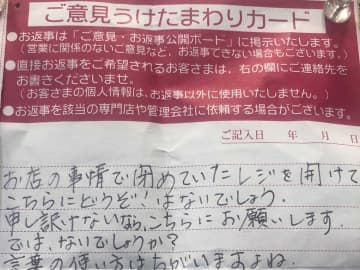 ご意見うけたまわりカード
●お返事は「ご意見・お返事公開ボード」に掲示いたします。
(営業に関係のないご意見など、お返事できない場合もございます。)
●直接お返事をご希望されるお客さまは、右の欄にご連絡先を
お書きくださいませ。
(お客さまの個人情報は、お返事以外に使用いたしません。)
●お返事を該当の専門店や管理会社に依頼する場合がございます。
ご記入日 年 月 日
お店の事情で閉めていたレジを開けて
こちらにどうぞ!はないでしょう。
申し訳けないなら、こちらにお願いします。
では、ないでしょうか?
言葉の使い方はちがいますよね。